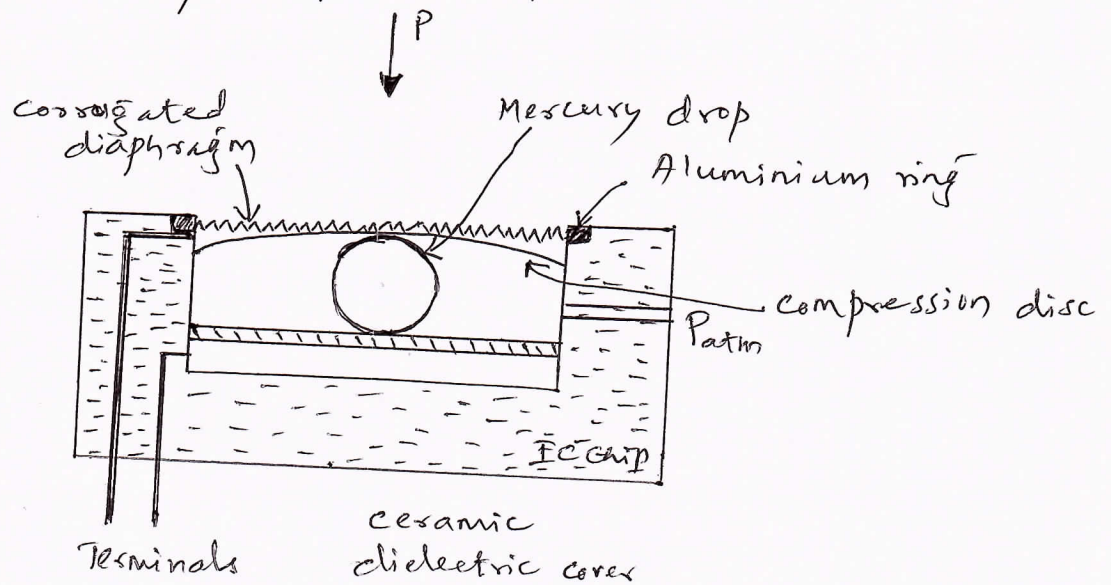 P
corrugated
diaphragm
Mercury drop
Aluminium ring
compression disc
Patm
IC chip
Terminals
ceramic
dielectric cover